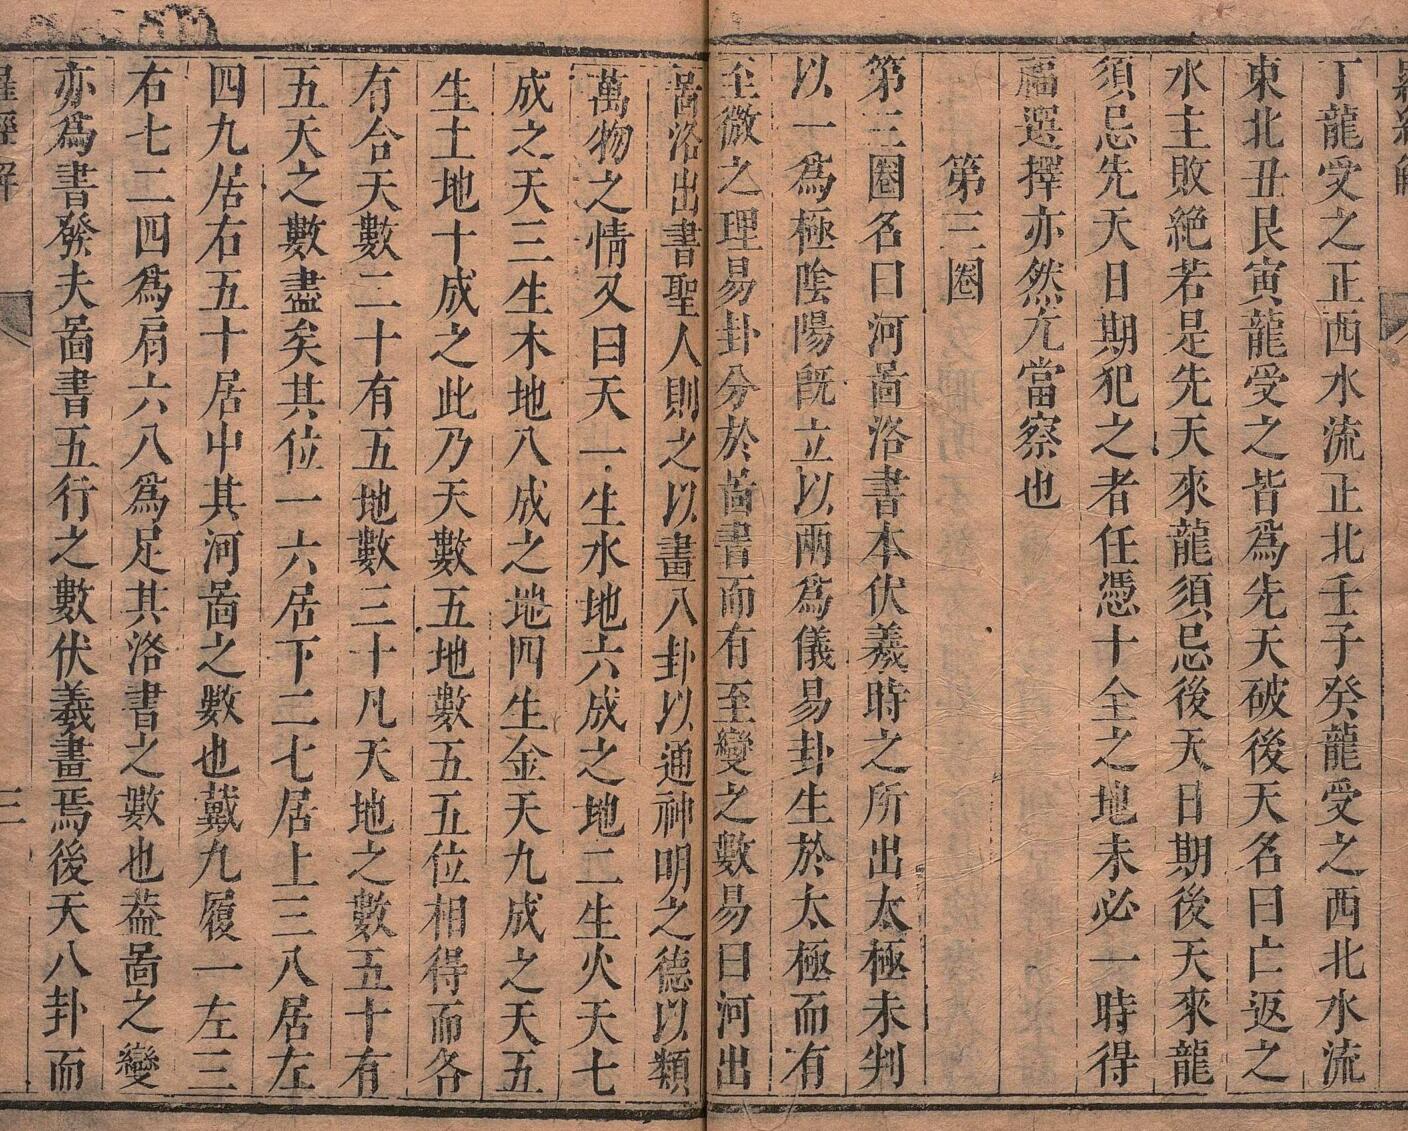 丁龍受之正西水流正北壬子癸龍受之西北水流
東北丑艮寅龍受之皆爲先天破後天名曰亡返之
水主敗絕若是先天來龍須忌後天日期後天來龍
須忌先天日期犯之者任憑十全之地未必一時得
福選擇亦然亢當察也
第三圈
第三圈名曰河啚洛書本伏羲時之所出太極未判
以一爲極陰陽旣立以兩爲儀易卦生於太極而有
至微之理易卦分於啚書而有至變之數易曰河出
啚洛出書聖人則之以畫八卦以通神明之德以類
萬物之情又曰天一生水地六成之地二生火天七
成之天三生木地八成之地四生金天九成之天五
生土地十成之此乃天數五地數五五位相得而各
有合天數二十有五地數三十凡天地之數五十有
五天之數盡矣其位一六居下二七居上三八居左
四九居右五十居中其河啚之數也戴九履一左三
右七二四爲肩六八爲足其洛書之數也葢啚之變
亦爲書發夫啚書五行之數伏羲畫焉後天八卦而
羅經解
三